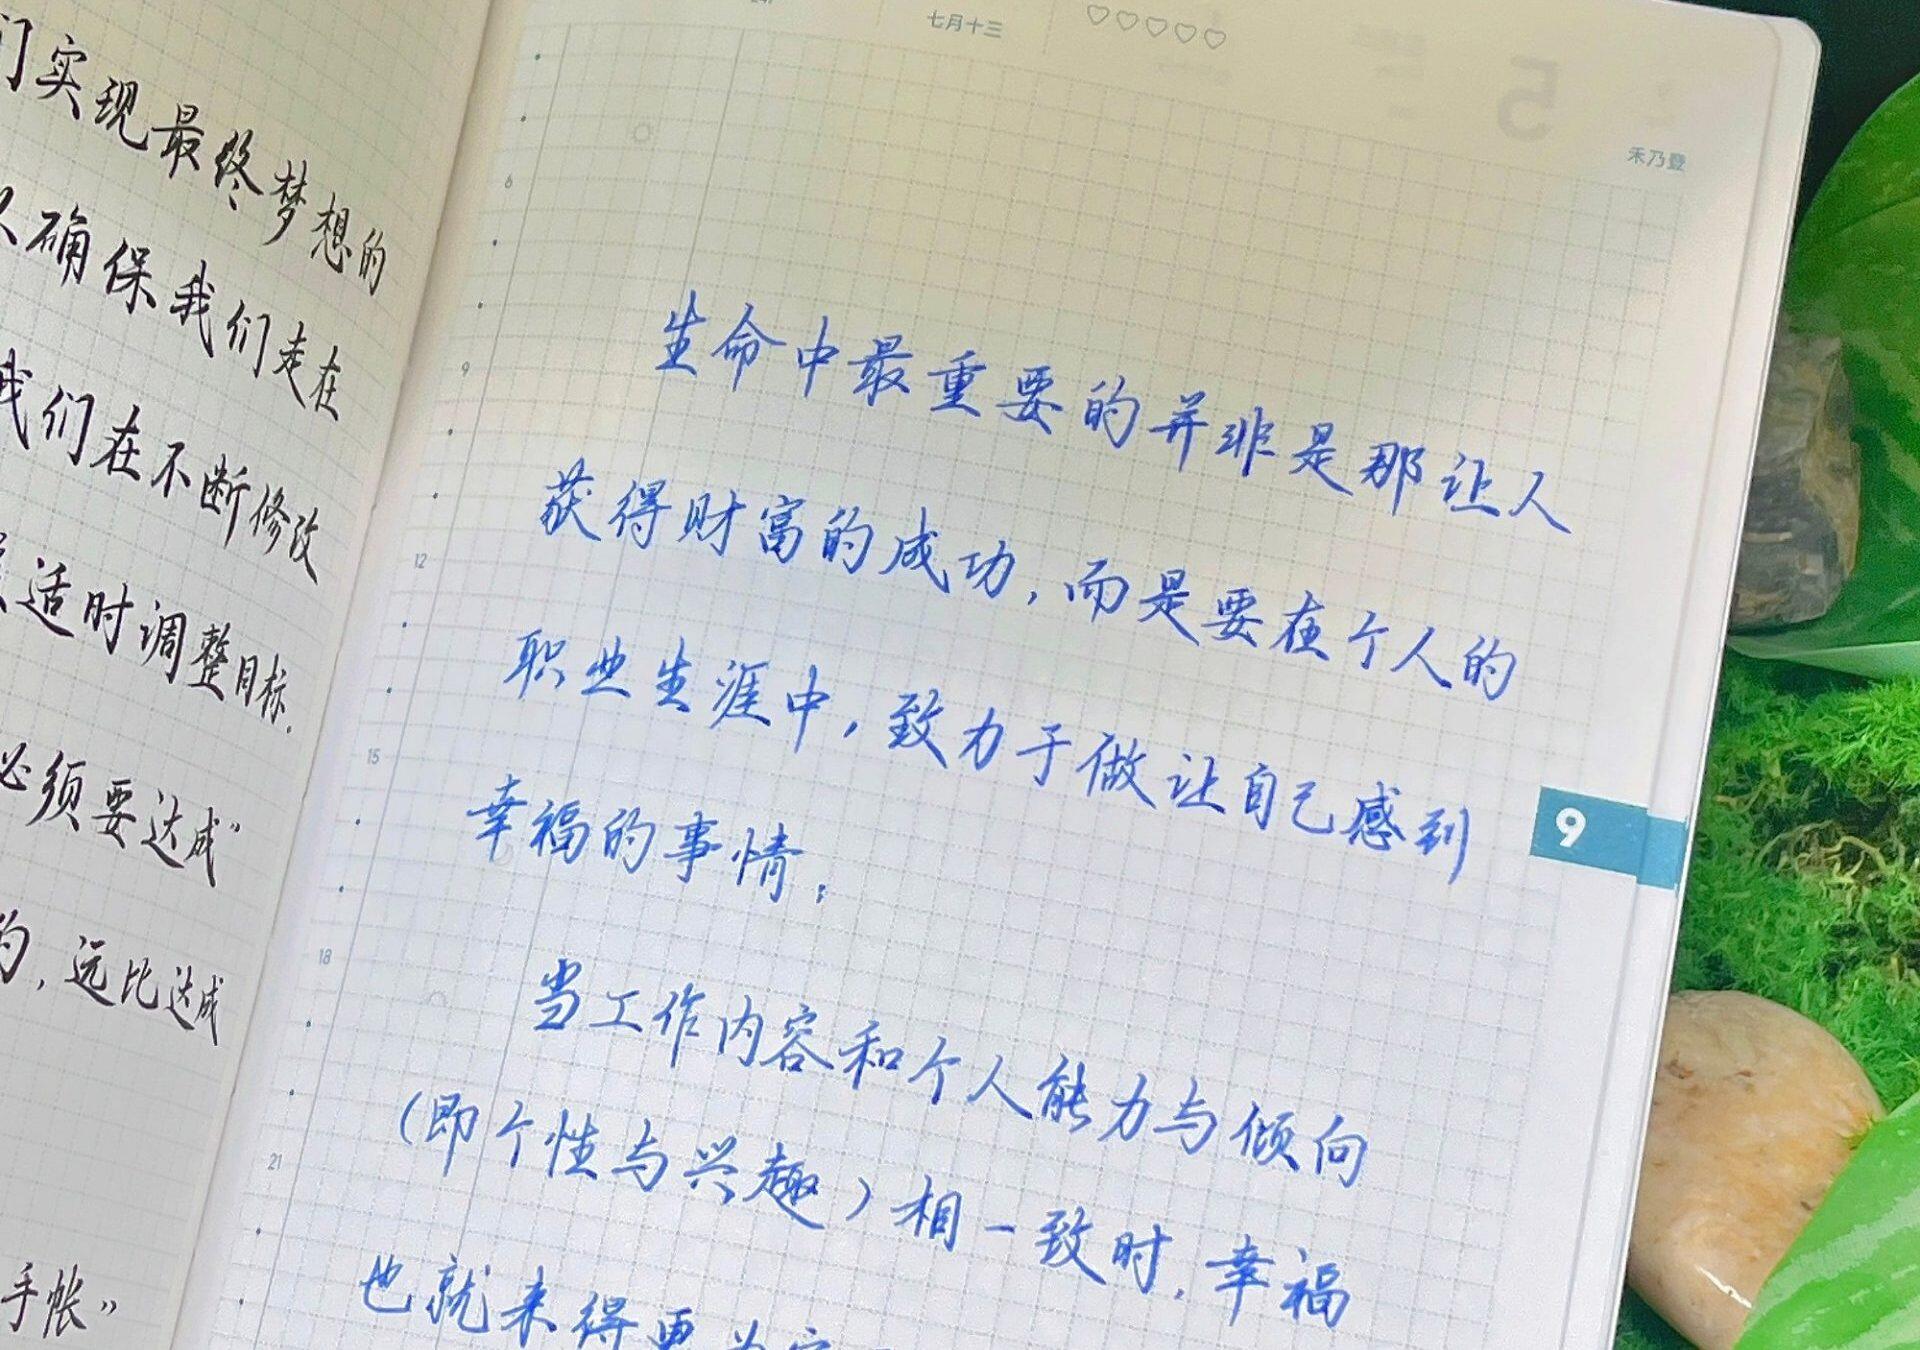 们实现最终梦想的
确保我们走在
我们在不断修改
适时调整目标.
必须要达成”
的, 远比达成
手帐”
七月十三
5
禾乃登
6
9
12
15
18
21
生命中最重要的并非是那让人
获得财富的成功, 而是要在个人的
职业生涯中, 致力于做让自己感到
幸福的事情;
9
当工作内容和个人能力与倾向
(即个性与兴趣) 相一致时, 幸福
也就来得更为